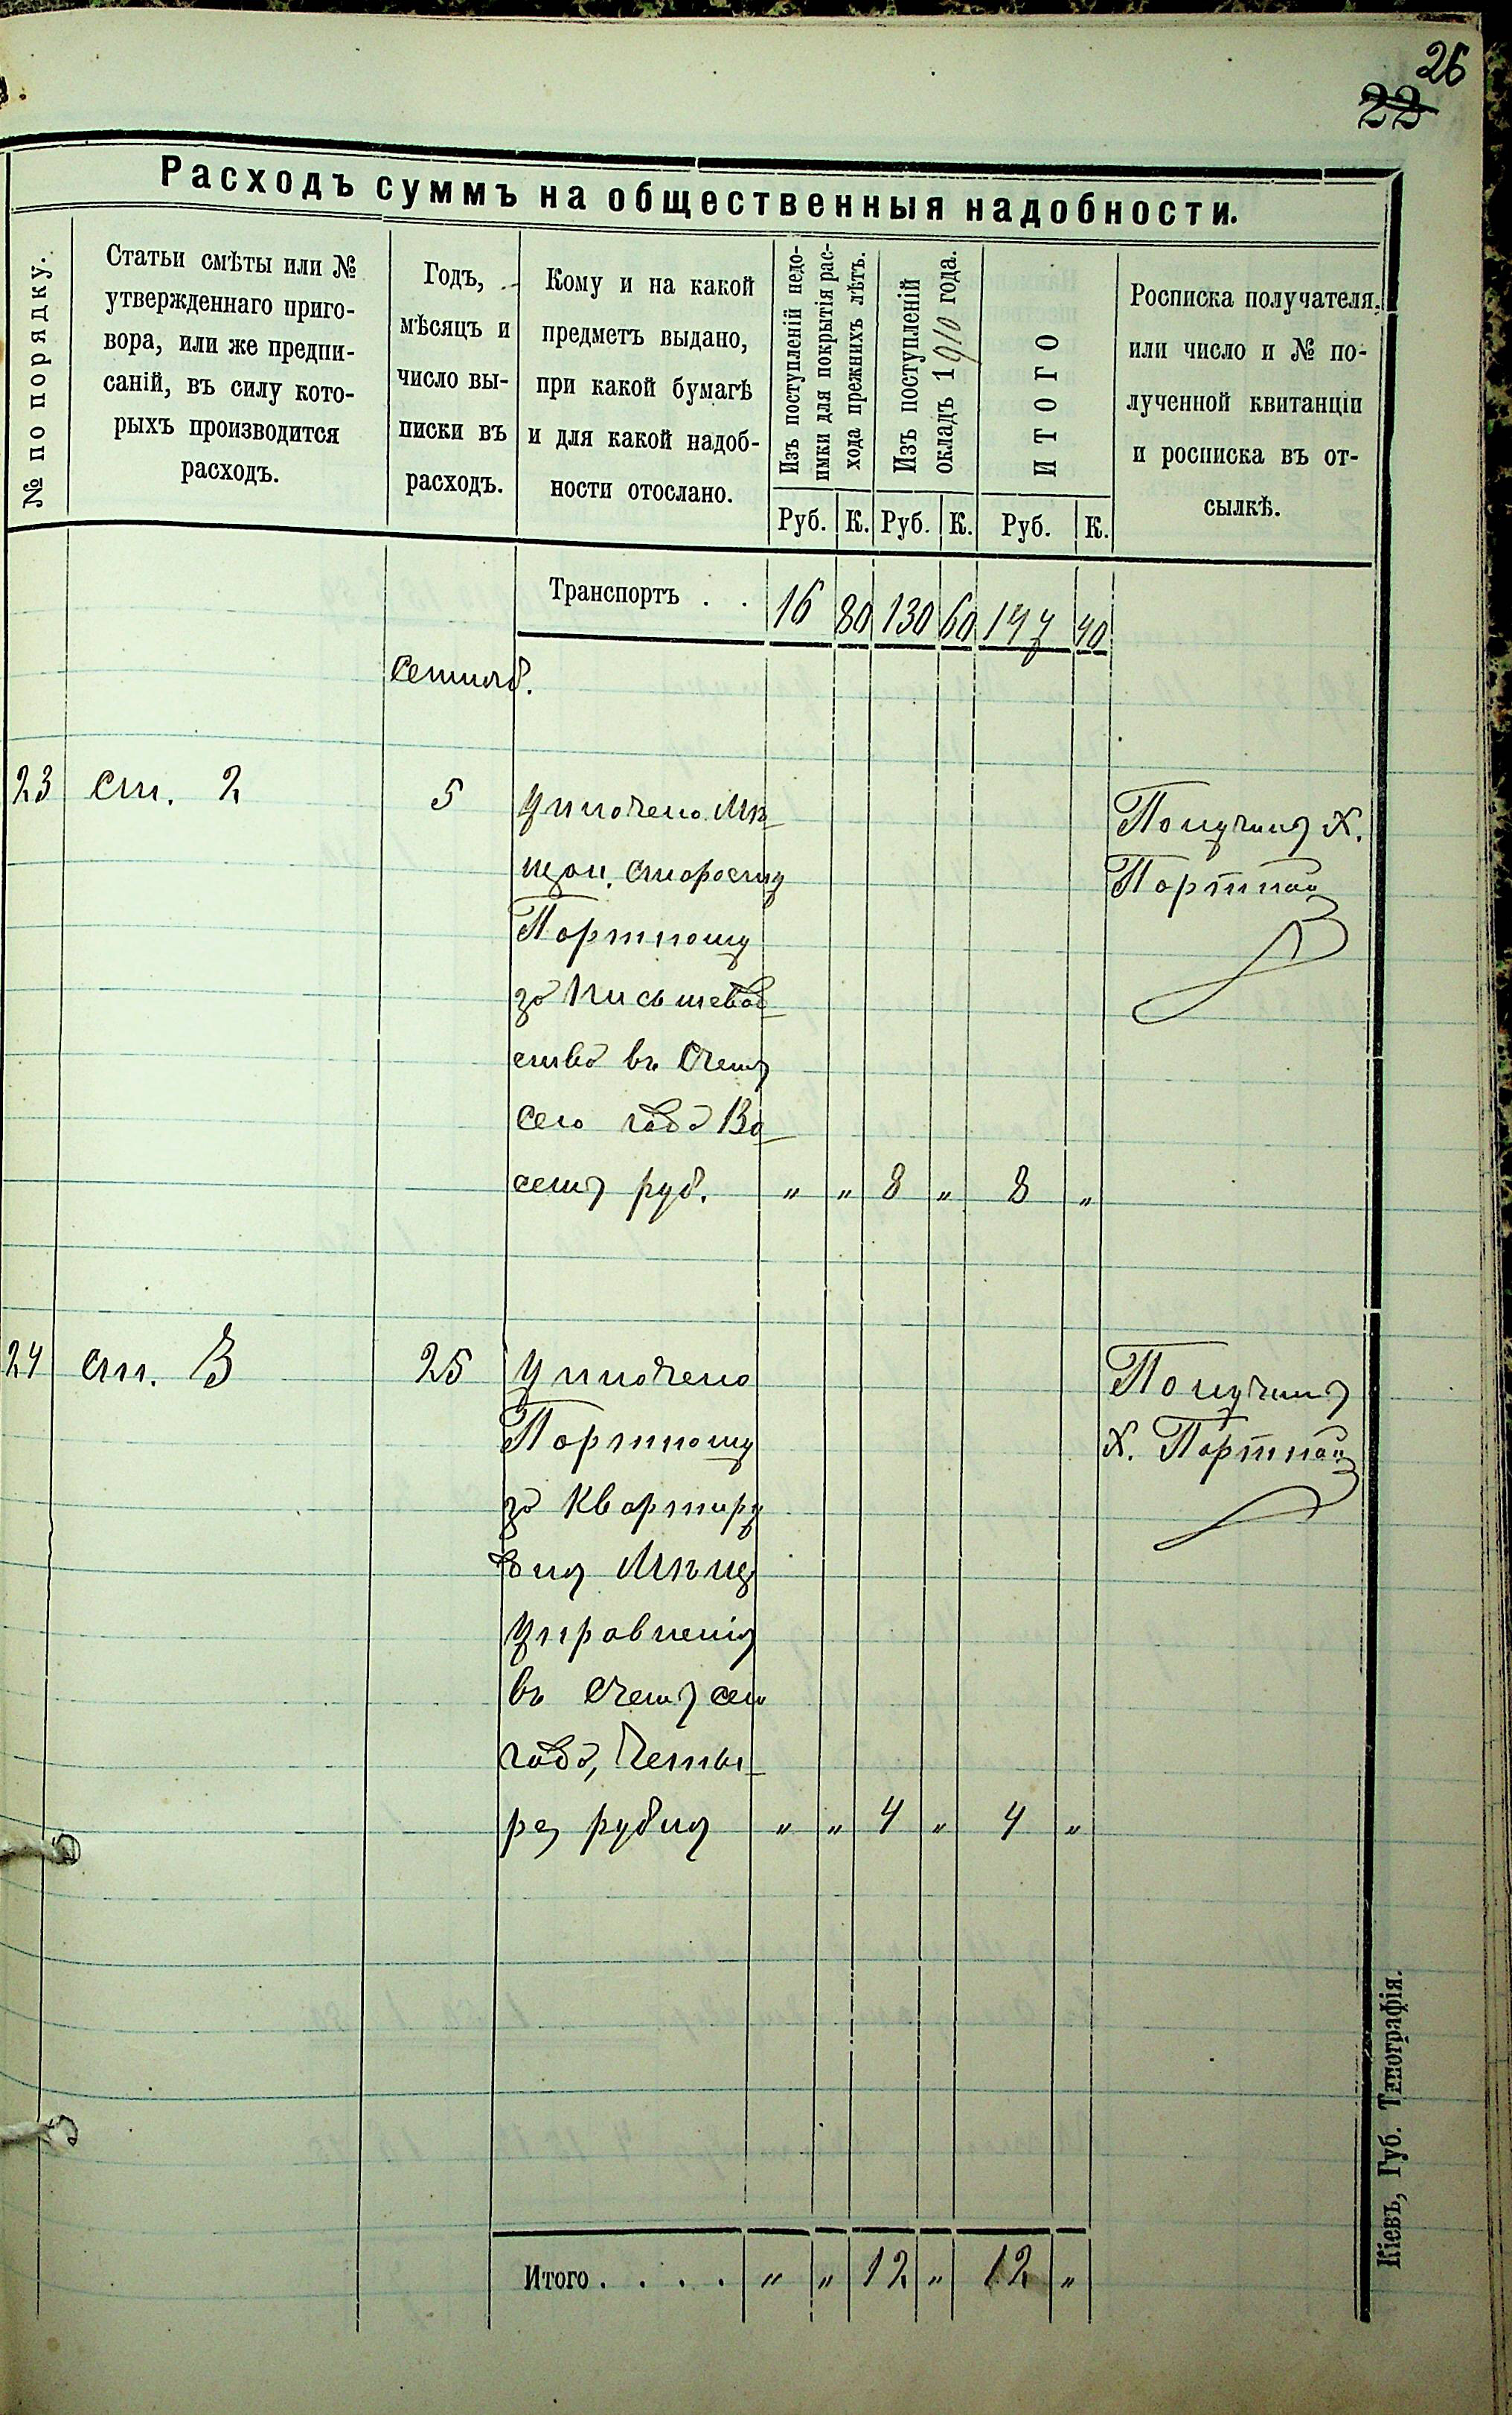 26
22
Расходъ суммъ на общественныя надобности.
№ по порядку.
Статьи смѣты или №
утвержденнаго приго-
вора, или же предпи-
саній, въ силу кото-
рыхъ производится
расходъ.
Годъ,
мѣсяцъ и
число вы-
писки въ
расходъ.
Кому и на какой
предметъ выдано,
при какой бумагѣ
и для какой надоб-
ности отослано.
Изъ поступленій недо-
имки для покрытія рас-
хода прежнихъ лѣтъ.
Изъ поступленій
окладъ 1910 года.
ИТОГО
Росписка получателя,
или число и № по-
лученной квитанціи
и росписка въ от-
сылкѣ.
Руб. К. Руб. К. Руб. К.
Транспортъ . . 16 80 130 60 147 40
Сентяб.
23 ст. 2 5 Уплочено Мѣ-
щан. старосты
Портному
за письмевод-
ство въ счетъ
сего года Во
семь руб. " " 8 " 8 "
Получилъ Х.
Портной
24 ст. 3 25 Уплочено
Портному
за квартиру
для Мѣщ
управленія
въ счетъ сего
года, четы-
ре рубля " " 4 " 4 "
Получилъ
Х. Портной
Итого . . . . " " 12 " 12 "
Кіевъ, Губ. Типографія.